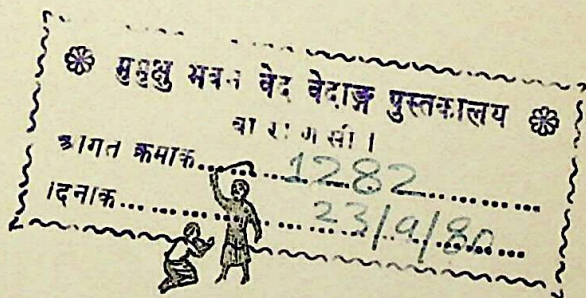 मुमुक्षु भवन वेद वेदाङ्ग पुस्तकालय
वाराणसी।
आगत क्रमाक.......1282..........
दिनाक.......23/9/80.......